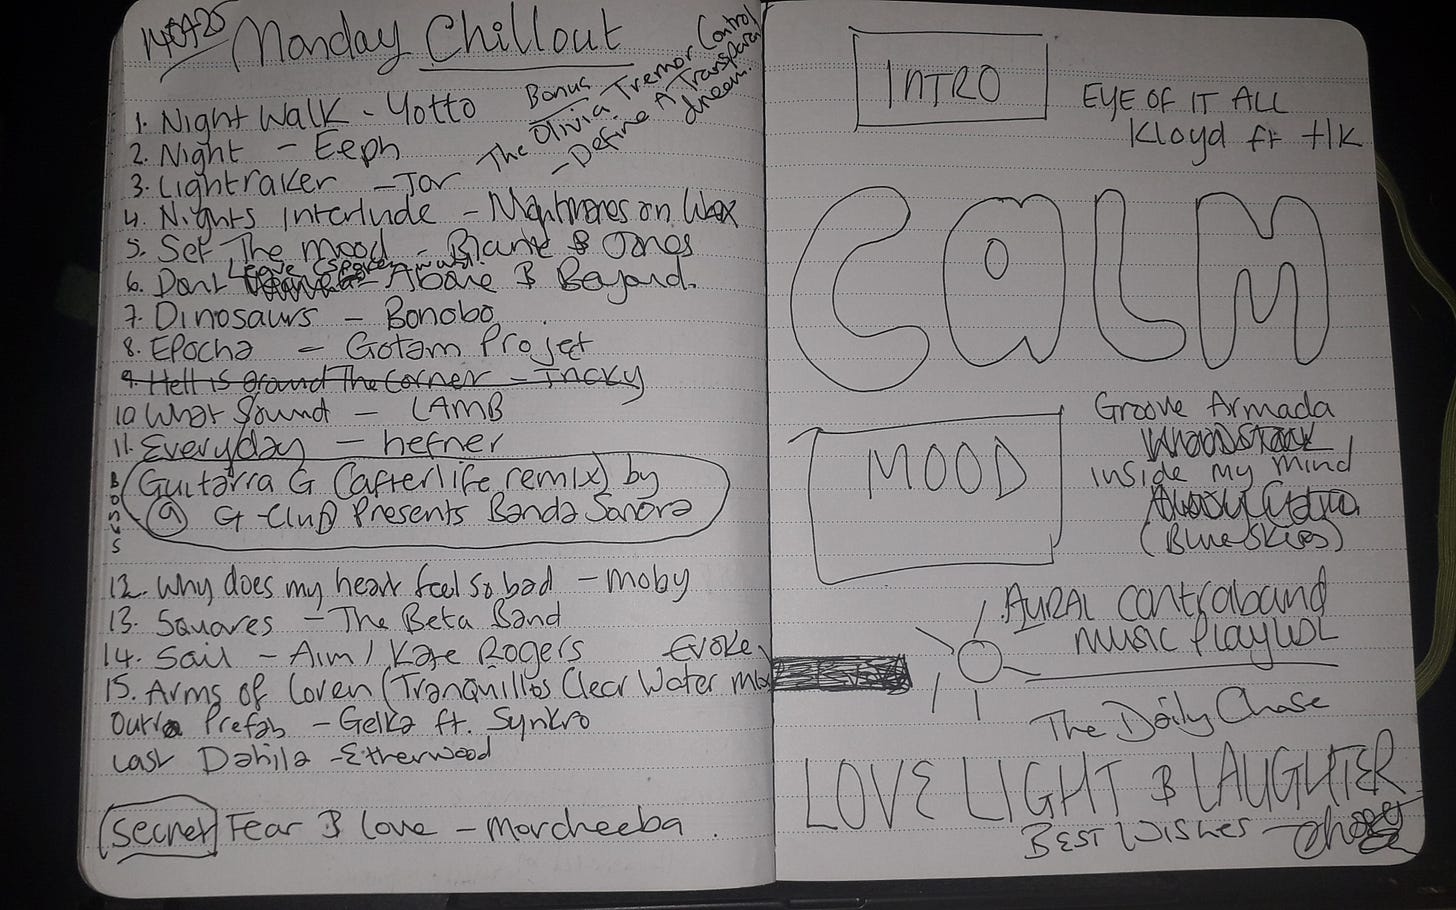 140725 Monday Chillout
Bonus
The Olivia Tremor Control
- Define A Transparent
dream.
1. Night Walk - Yotto
2. Night - Eeph
3. Lightraker - Jar
4. Nights Interlude - Nightmares on Wax
5. Set The mood - Blank & Jones
6. Dont Leave - Above & Beyond.
7. Dinosaurs - Bonobo
8. Epoca - Gotam Project
9. Hell is around The Corner - Tricky
10 What Sound - LAMB
11. Everyday - hefner
BONUS
Guitarra G (afterlife remix) by
@ G-Club Presents Banda Sonora
12. Why does my heart feel so bad - moby
13. Squares - The Beta Band
14. Sail - Aim / Kate Rogers
15. Arms of Loren (Tranquillos Clear Water mix Evoke
Outro Prefab - Gelka ft. Synkro
Last Dahila - Etherwood
Secret Fear & Love - Morcheeba.
INTRO
EYE OF IT ALL
Kloyd ft tlk
CALM
MOOD
Groove Armada
inside my mind
(Blue Skies)
AURAL Contraband
music Playlist
The Daily Chase
LOVE LIGHT & LAUGHTER
BEST WISHES